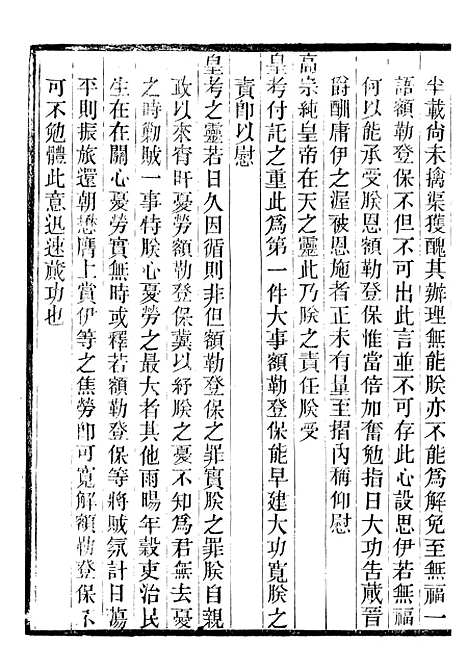 半載尚未擒渠獲醜其辦理無能朕亦不能為解免至無福一
語額勒登保不但不可出此言並不可存此心設思伊若無福
何以能承受朕恩額勒登保惟當倍加奮勉指日大功告蕆晉
爵酬庸伊之渥被恩施者正未有量至摺內稱仰慰
高宗純皇帝在天之靈此乃朕之責任朕受
皇考付託之重此為第一件大事額勒登保能早建大功寬朕之
責即以慰
皇考之靈若日久因循則非但額勒登保之罪實朕之罪朕自親
政以來宵旰憂勞額勒登保冀以紓朕之憂不知為君無去憂
之時勦賊一事特朕心憂勞之最大者其他雨暘年穀吏治民
生在在關心憂勞實無時或釋若額勒登保等將賊氛計日蕩
平則振旅還朝懋膺上賞伊等之焦勞即可寬解額勒登保不
可不勉體此意迅速蕆功也